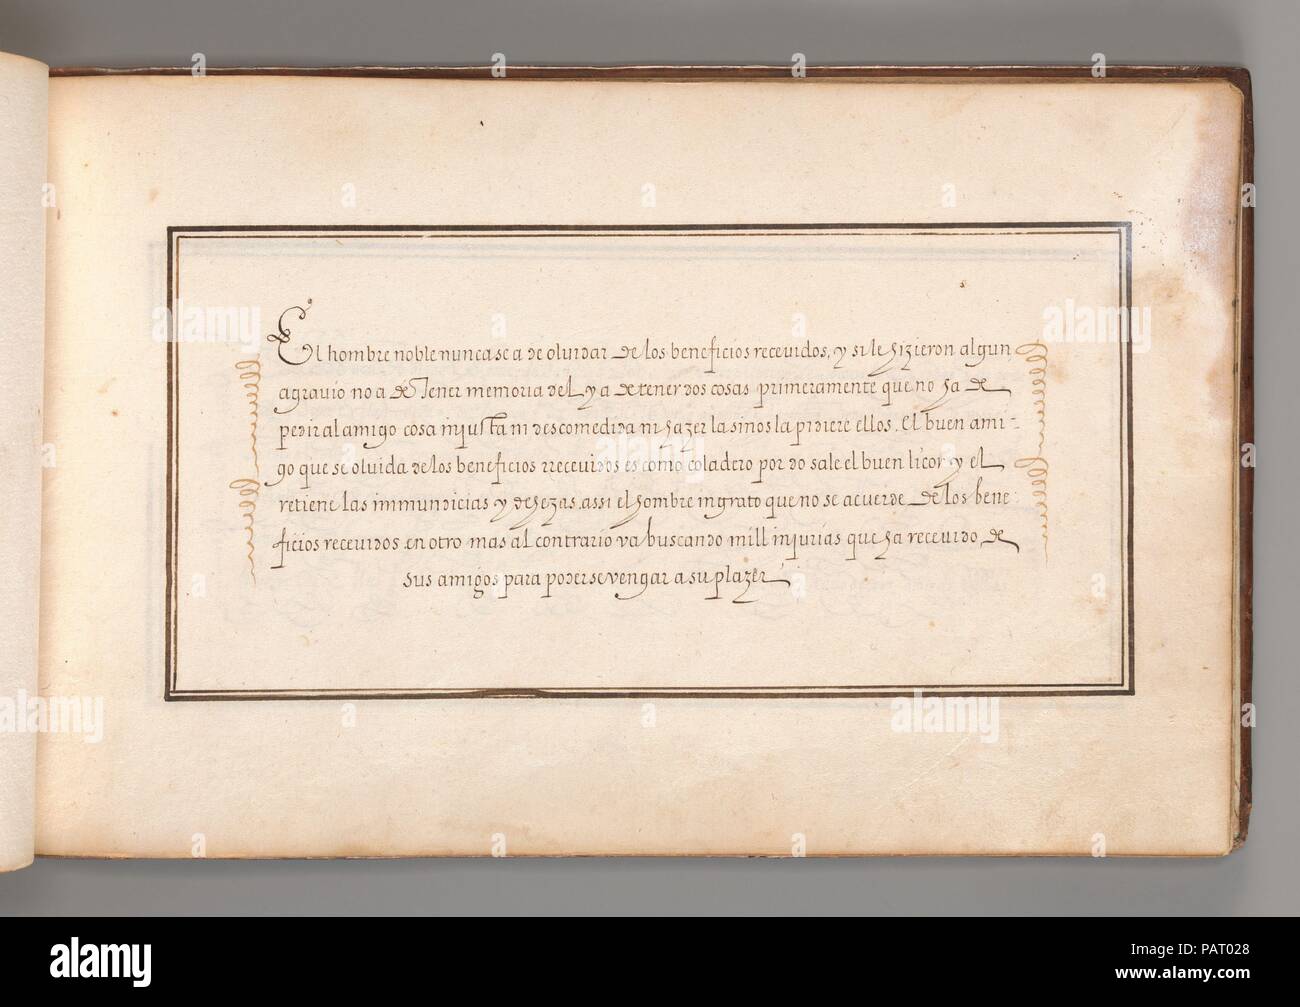 El hombre noble nunca se a de olvidar de los beneficios recevidos, y si le hizieron algun
agravio no a de tener memoria del, y a de tener dos cosas primeramente que no ha de
pedir al amigo cosa injusta ni descomedida ni hazer la si nos la pidiere ellos. El buen ami-
go que se olvida de los beneficios rrecevidos es como coladero por do sale el buen licor y el
retiene las immundicias y dehezas. assi el hombre ingrato que no se acuerde de los bene
ficios recevidos en otro mas al contrario va buscando mill injurias que ha recevido de
sus amigos para poderse vengar a su plazer
alamy
Image ID: PAT028
www.alamy.com